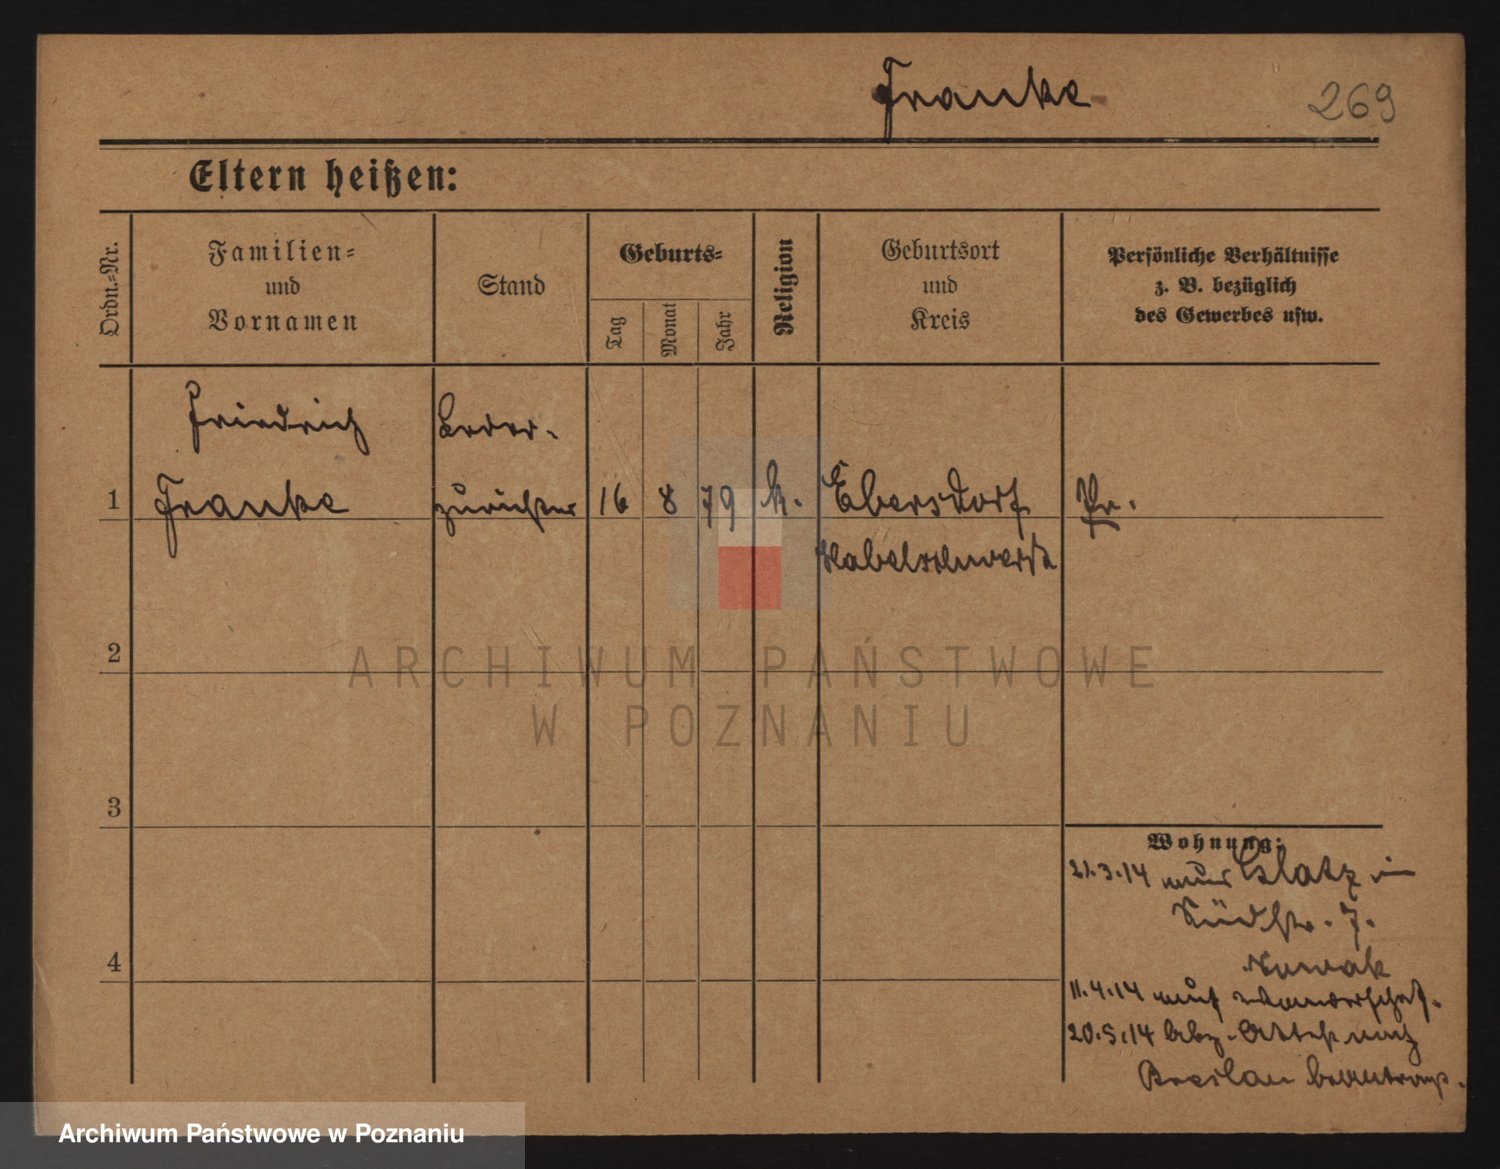 Franke
269
Eltern heißen:
Ordn.-Nr.
Familien-
und
Vornamen
Stand
Geburts-
Tag
Monat
Jahr
Religion
Geburtsort
und
Kreis
Persönliche Verhältnisse
z. B. bezüglich
des Gewerbes usw.
Friedrich
Leder-
1
Franke
zurichter
16
8
79
k.
Ebersdorf
Pr.
Habelschwerdt
2
ARCHIWUM PAŃSTWOWE
W POZNANIU
3
Wohnung:
21.3.14 aus Glatz in
Südstr. 7.
Nowak
4
11.4.14 auf Wanderschaft.
20.5.14 Abz. Attest nach
Breslau beantragt.
Archiwum Państwowe w Poznaniu